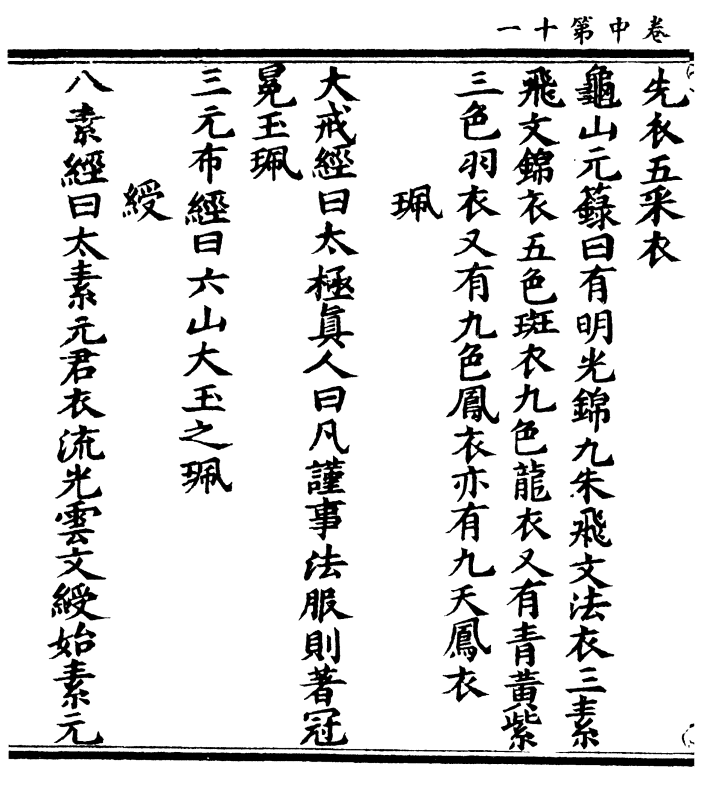 卷中第十一
先衣五采衣
龜山元籙曰有明光錦九朱飛文法衣三素
飛文錦衣五色斑衣九色龍衣又有青黃紫
三色羽衣又有九色鳳衣亦有九天鳳衣
珮
大戒經曰太極眞人曰凡謹事法服則著冠
冕玉珮
三元布經曰六山大玉之珮
綬
八素經曰太素元君衣流光雲文綬始素元